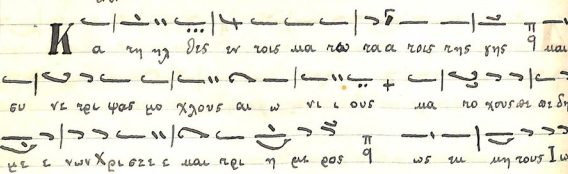 Κ α τη ηλ θες εν τοις κα τω τα α τοις της γης π q και
συ νε τρι ψας μο χλους αι ω νι ι ους κα το χους πε πε δη
με ε νων Χρι στε ε και τρι η με ρος π q ως εκ κη τους Ιω